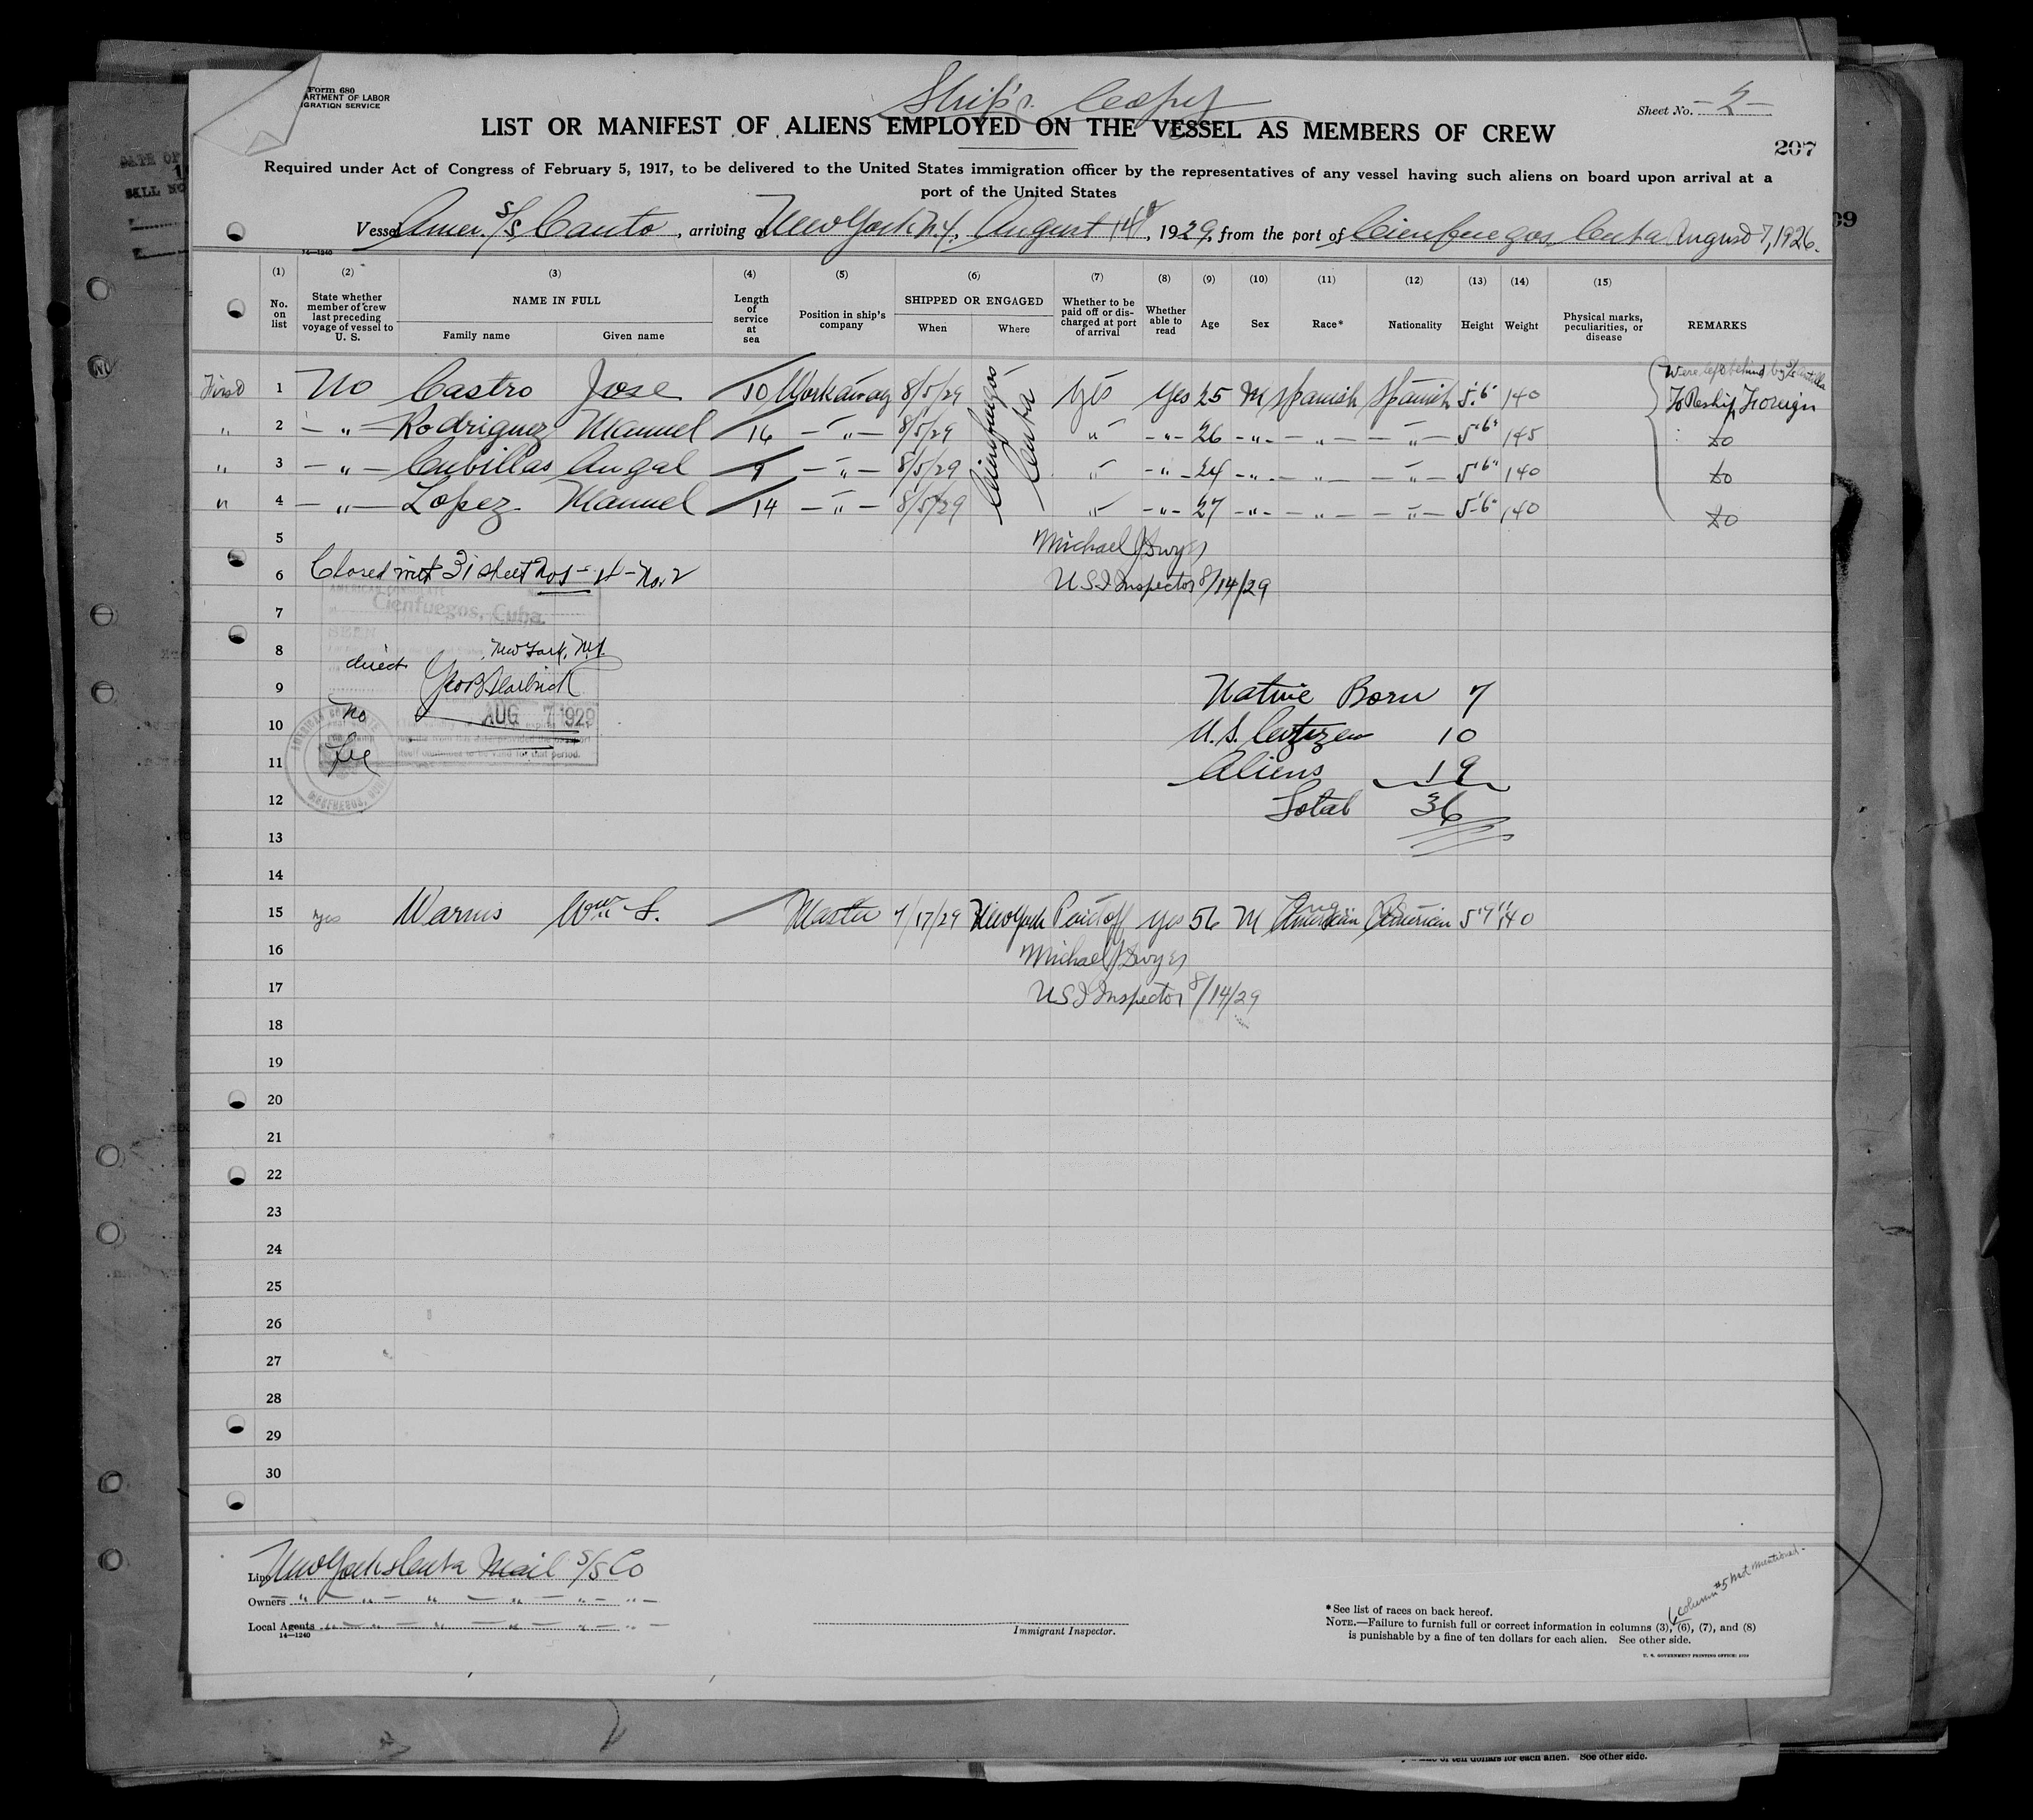 Form 680
ARTMENT OF LABOR
IGRATION SERVICE
Ship's Copy
Sheet No. - 2 -
LIST OR MANIFEST OF ALIENS EMPLOYED ON THE VESSEL AS MEMBERS OF CREW
207
Required under Act of Congress of February 5, 1917, to be delivered to the United States immigration officer by the representatives of any vessel having such aliens on board upon arrival at a
port of the United States
Vessel Amer. S/S Cauto, arriving at New York N.Y. August 14, 1929, from the port of Cienfuegos Cuba August 7, 1926.
14—1240
(1) (2) (3) (4) (5) (6) (7) (8) (9) (10) (11) (12) (13) (14) (15)
No. on list
State whether member of crew last preceding voyage of vessel to U. S.
NAME IN FULL
Family name Given name
Length of service at sea
Position in ship's company
SHIPPED OR ENGAGED
When Where
Whether to be paid off or discharged at port of arrival
Whether able to read
Age Sex Race* Nationality Height Weight
Physical marks, peculiarities, or disease
REMARKS
Were left behind by S/S
First 1 No Castro Jose 10 Workaway 8/5/29 Cienfuegos Cuba Yes Yes 25 M Spanish Spanish 5'6" 140 To Reship Foreign
" 2 — " — Rodriguez Manuel 14 — " — 8/5/29 " - " - 26 - " - — " — — " — 5'6" 145 do
" 3 — " — Cubillas Angal 9 — " — 8/5/29 " - " - 24 - " - — " — — " — 5'6" 140 do
" 4 — " — Lopez Manuel 14 — " — 8/5/29 " - " - 27 - " - — " — — " — 5'6" 140 do
5 Michael J Dwyer
6 Closed with 31 sheet No 1 - 4 - No. 2
U S I Inspector 8/14/29
AMERICAN CONSULATE
Cienfuegos, Cuba.
7
SEEN
8 direct New York, N.Y.
9 Native Born 7
10 No AUG 7 1929
U.S. Citizen 10
11 fee
Aliens 19
12 Total 36
13
14
15 yes Warms Wm S. Master 7/17/29 New York Paid off yes 56 M American American 5'9" 140
16 Michael J Dwyer
17 U S I Inspector 8/14/29
18
19
20
21
22
23
24
25
26
27
28
29
30
Line New York & Cuba Mail S/S Co
Owners " — " — " — " — " — " —
Local Agents " — " — " — " — " — " —
14—1240
Immigrant Inspector.
column #5 not mentioned.
*See list of races on back hereof.
NOTE.—Failure to furnish full or correct information in columns (3), (6), (7), and (8)
is punishable by a fine of ten dollars for each alien. See other side.
U. S. GOVERNMENT PRINTING OFFICE:
of ten dollars for each alien. See other side.